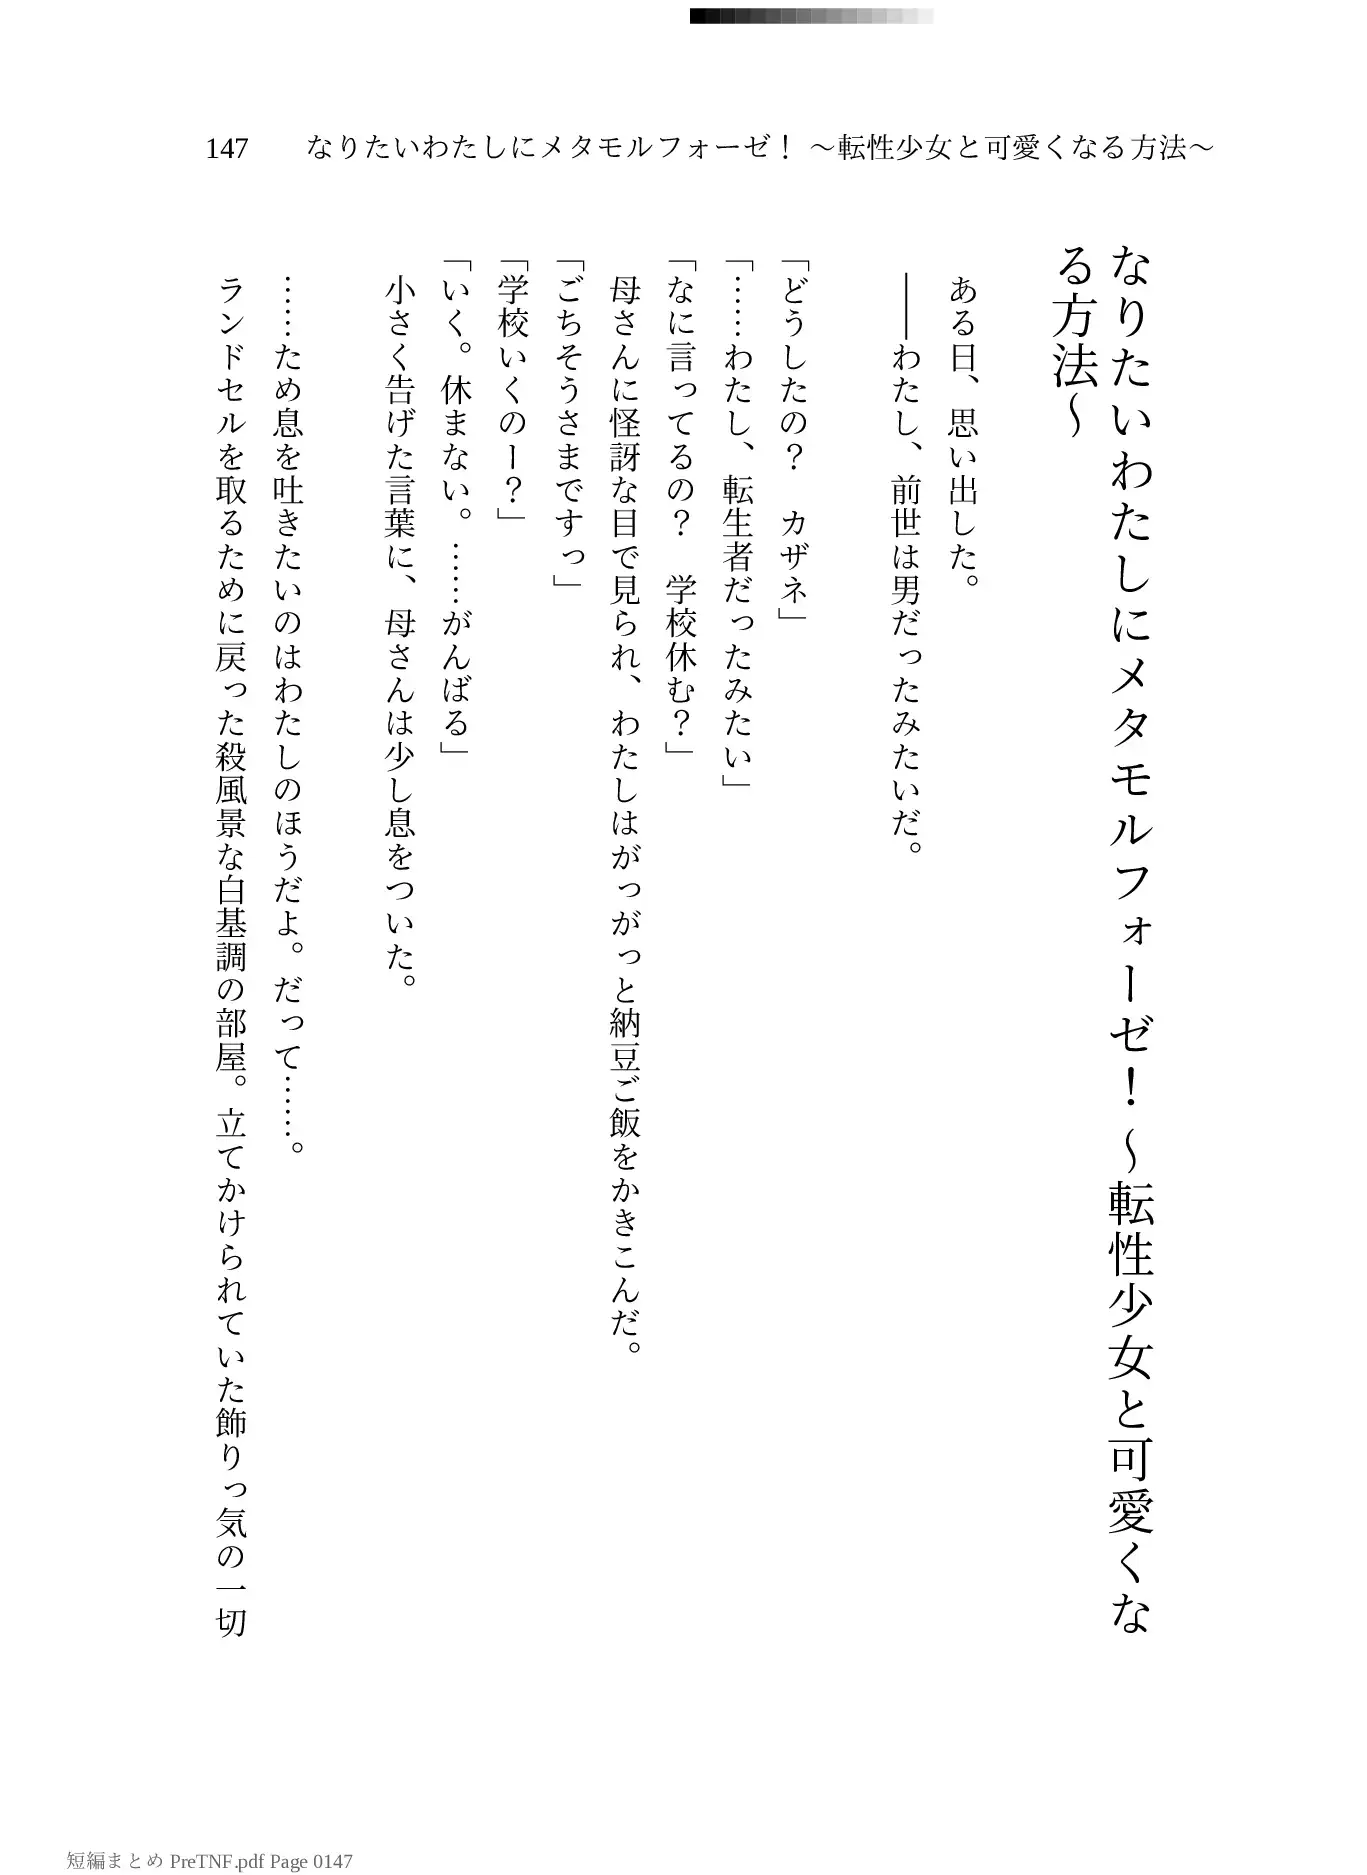 147　なりたいわたしにメタモルフォーゼ！ ～転性少女と可愛くなる方法～
なりたいわたしにメタモルフォーゼ！ ～転性少女と可愛くな
る方法～
　ある日、思い出した。
　――わたし、前世は男だったみたいだ。
「どうしたの？　カザネ」
「……わたし、転生者だったみたい」
「なに言ってるの？　学校休む？」
　母さんに怪訝な目で見られ、わたしはがっがっと納豆ご飯をかきこんだ。
「ごちそうさまですっ」
「学校いくのー？」
「いく。休まない。……がんばる」
　小さく告げた言葉に、母さんは少し息をついた。
　……ため息を吐きたいのはわたしのほうだよ。だって……。
　ランドセルを取るために戻った殺風景な白基調の部屋。立てかけられていた飾りっ気の一切
短編まとめ PreTNF.pdf Page 0147